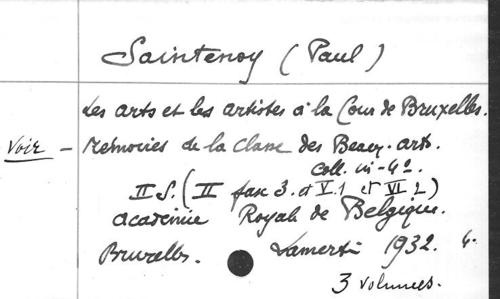 Saintenoy (Paul)
Les arts et les artistes à la Cour de Bruxelles.
Voir - Mémoires de la Classe des Beaux-arts.
Coll. in-4°.
II S. (II fasc 3. et V.1 et VI 2)
Académie Royale de Belgique.
Bruxelles. Lamertin 1932.
3 volumes.